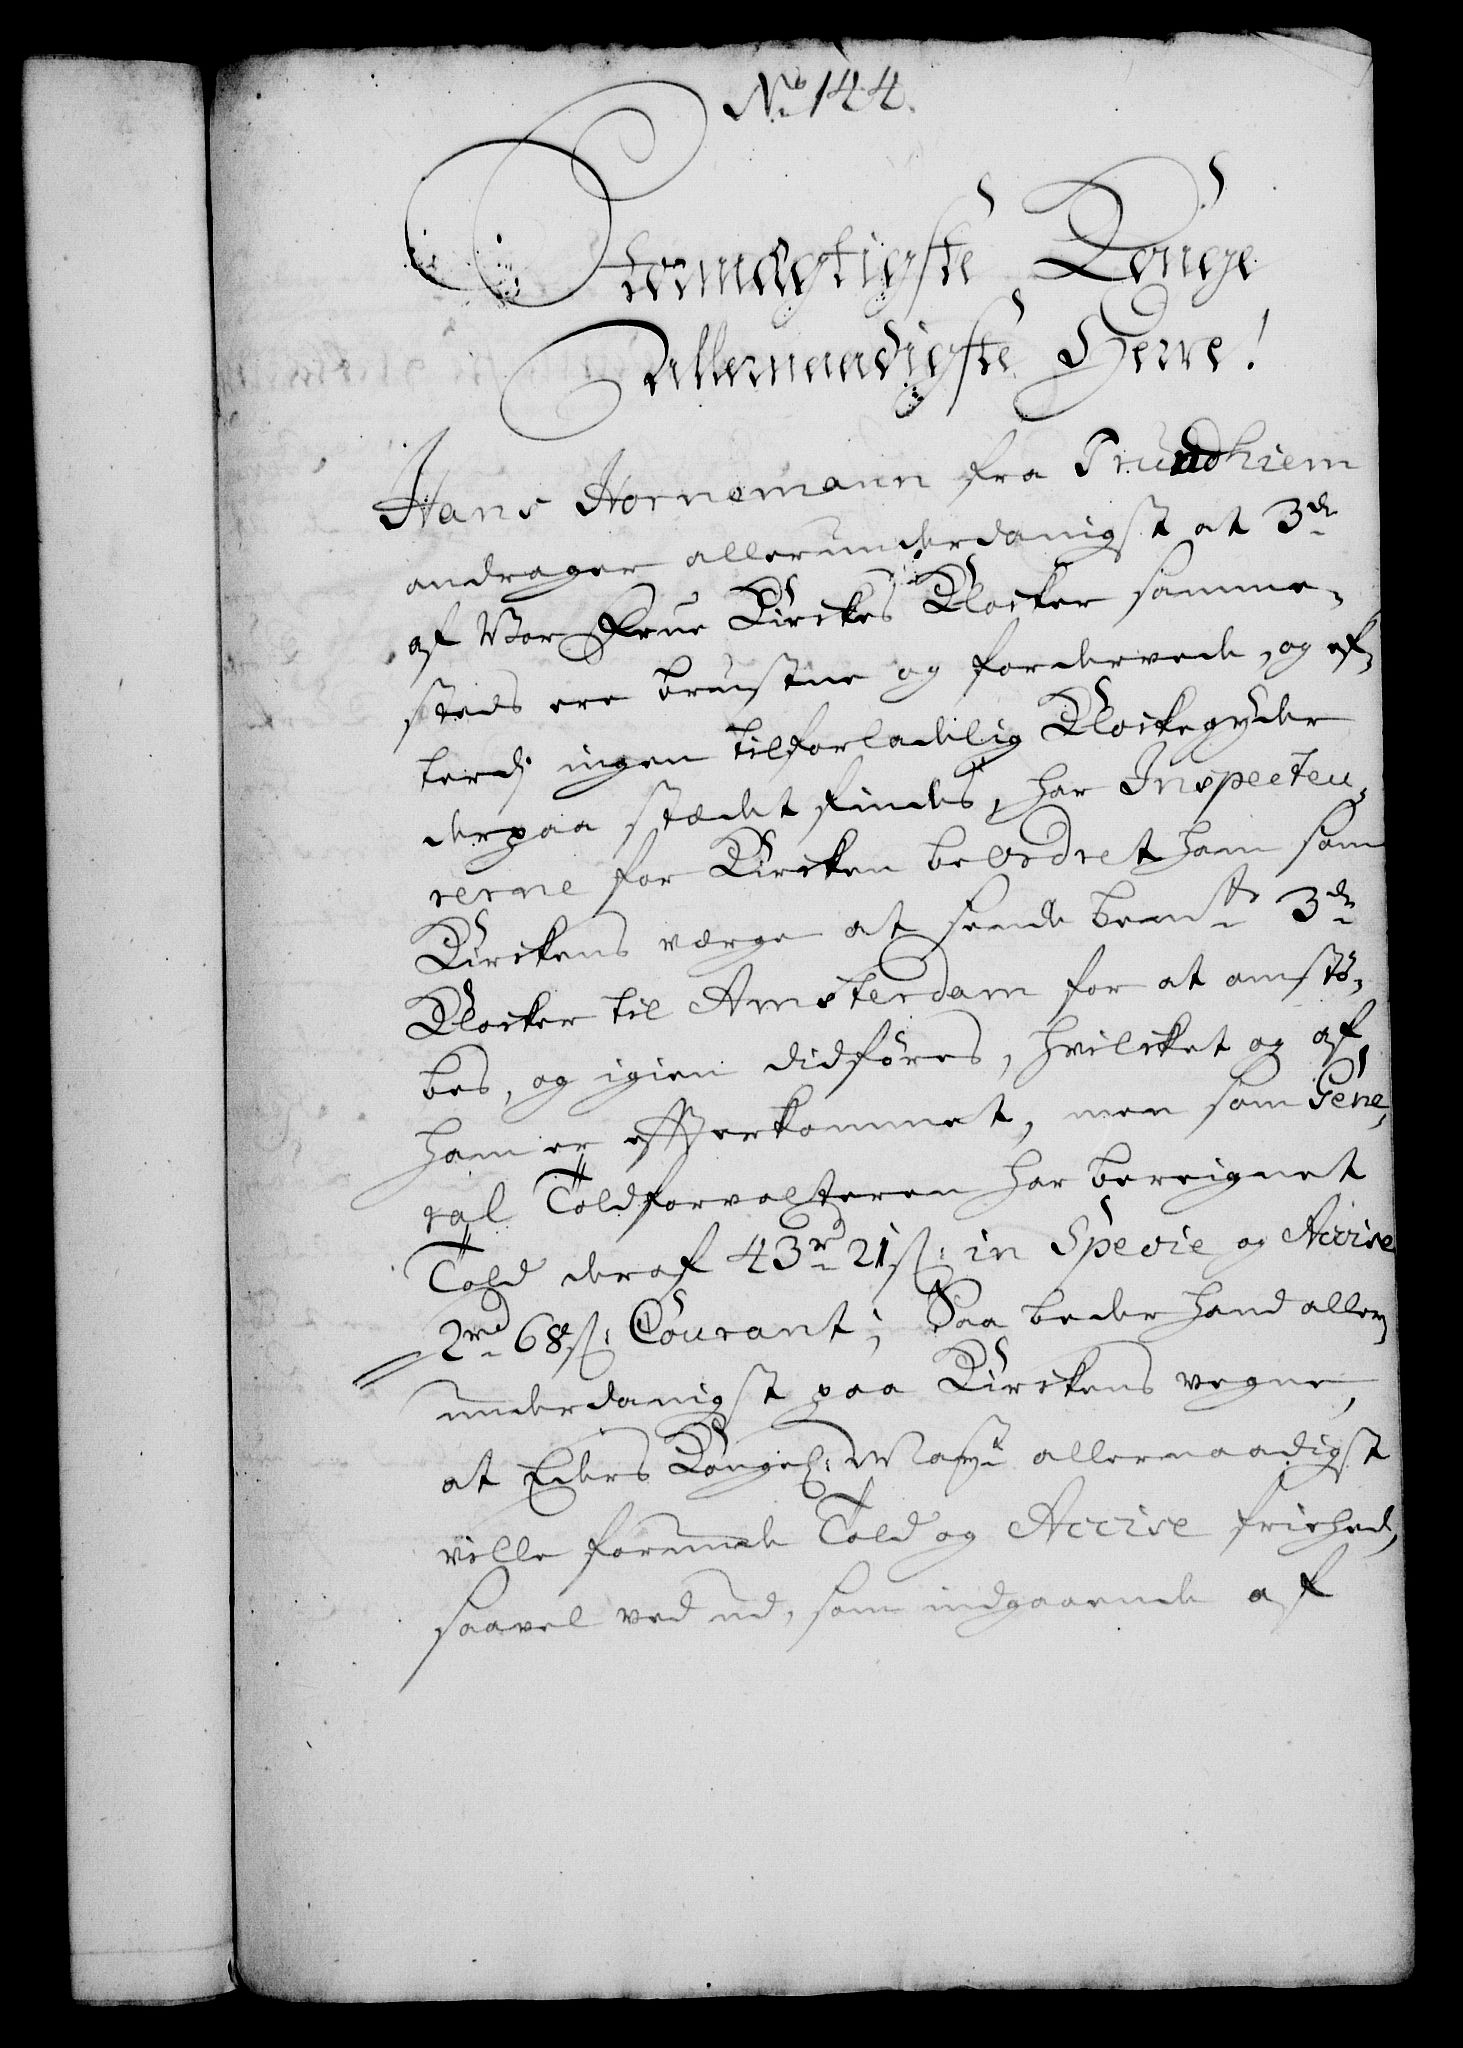 No 144.
Stormægtigste Konge
Allernaadigste Herre!
Hans Hornemann fra Trundhiem
andrager allerunderdanigst at 3de
af Vor Frue Kirckes Klocker samme-
steds ere brustne og fordervede, og ef-
terdj ingen tilforladelig Klockegyder
derpaa stædet findes, har Inspecteu-
rerne for Kircken beordret ham som
Kirckens værge at sende bemte 3de
Klocker til Amsterdam for at omstö-
bes, og igien didföres, hvilcket og af
ham er efterkommet, men som Gene-
ral Toldforvalteren har bereignet
Told deraf 43rd 21s: in Specie og Accise
2rd 68s: Courant; Saa beder hand aller-
underdanigst paa Kirckens vegne,
at Eders Kongel: Mayt allernaadigst
ville forunde Told og Accise frihed,
saavel ved ud, som indgaaende af